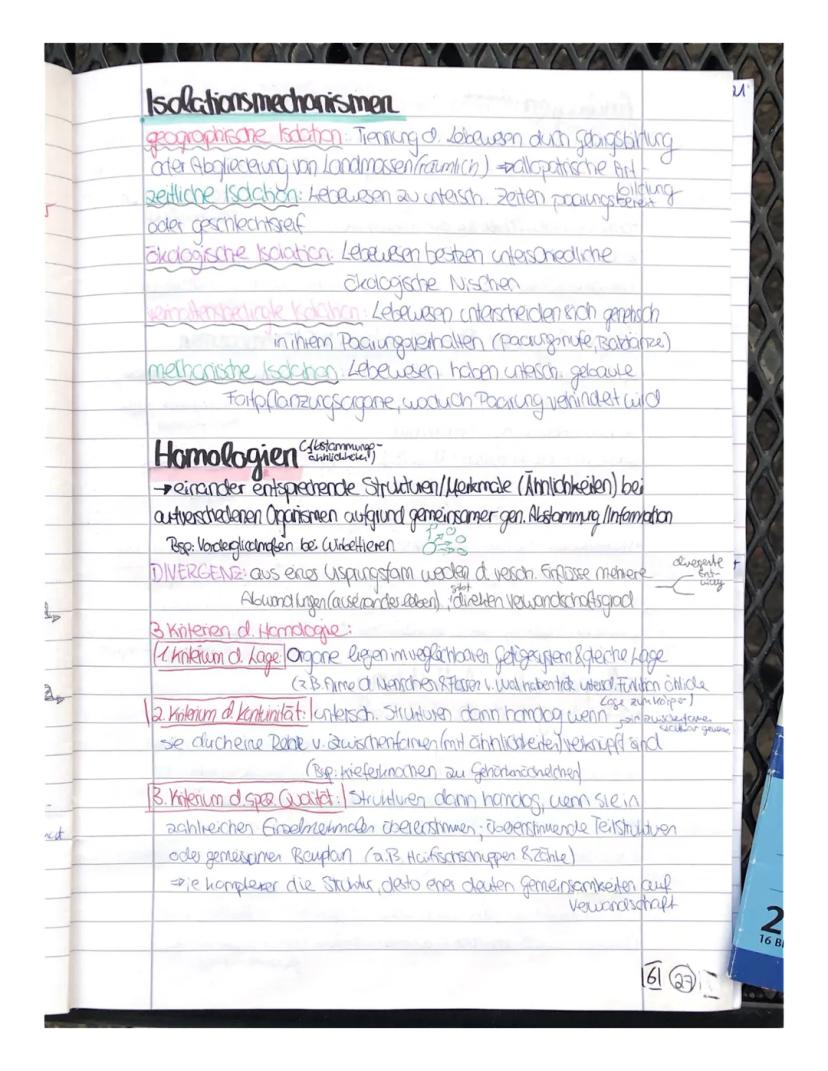 Isolationsmechanismen
geographische Isolation: Trennung d. Lebewesen durch Gebirgsbildung
oder Abgliederung von Landmassen (räumlich) → allopatrische Art-
bildung
zeitliche Isolation: Lebewesen zu untersch. Zeiten paarungsbereit
oder geschlechtsreif
ökologische Isolation: Lebewesen besitzen unterschiedliche
ökologische Nischen
verhaltensbedingte Isolation: Lebewesen unterscheiden sich genetisch
in ihrem Paarungsverhalten (Paarungsrufe, Balztänze)
mechanische Isolation: Lebewesen haben untersch. gebaute
Fortpflanzungsorgane, wodurch Paarung verhindert wird
Homologien (Abstammungs-
ähnlichkeit)
→ einander entsprechende Strukturen/Merkmale (Ähnlichkeiten) bei
unterschiedenen Organismen aufgrund gemeinsamer gen. Abstammung/Information
Bsp: Vordergliedmaßen bei Wirbeltieren
DIVERGENZ: aus einer Ursprungsform werden d. versch. Einflüsse mehrere
divergente
Ent-
wickl
Abwandlungen (auseinander leben), gibt direkten Verwandschaftsgrad
3 Kriterien d. Homologie:
1. Kriterium d. Lage: Organe liegen im vergleichbaren Gefügesystem & gleiche Lage
(z.B. Arme d. Menschen & Flosse v. Wal haben trotz untersch. Funktion ähnliche
Lage zum Körper)
2. Kriterium d. Kontinuität: untersch. Strukturen dann homolog wenn
sie durch eine Reihe v. Zwischenformen (mit Ähnlichkeiten) verknüpft sind
(Bsp: Kieferknochen zu Gehörknöchelchen)
3. Kriterium d. spez. Qualität: Strukturen dann homolog, wenn sie in
zahlreichen Einzelmerkmalen übereinstimmen; übereinstimmende Teilstrukturen
oder gemeinsamer Bauplan (z.B. Haifischschuppen & Zähne)
→ je komplexer die Struktur, desto eher deuten Gemeinsamkeiten auf
Verwandschaft
6 27
2
16 Bl